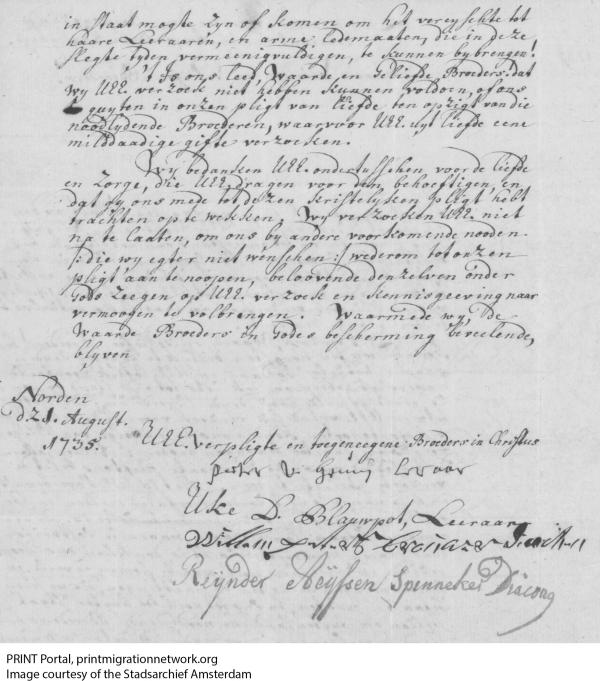 in staat mogte zyn of komen om het vereyschte tot
haare Leeraaren, en arme ledemaaten, die in deze
slegte tyden vermeenigvuldigen, te kunnen bybrengen!
't Is ons leed, Waarde en Geliefde Broeders! dat
wy UEE. verzoek niet hebben kunnen voldoen, of ons
quyten in onzen pligt van liefde ten opzigt van die
noodlydende Broederen, waarvoor UEE. uyt liefde eene
milddaadige gifte verzoeken.
Wy bedanken UEE. ondertusschen voor de liefde
en zorge, die UEE. dragen voor den behoeftigen, en
dat gy ons mede tot dezen kristelyken pligt hebt
trachten op te wekken; Wy verzoeken UEE. niet
na te laaten, om ons by andere voorkomende nooden
/:die wy egter niet wenschen:/ wederom tot onzen
pligt aan te noopen, beloovende denzelven onder
Gods zeegen op UEE. verzoek en kennisgeeving naar
vermoogen te volbrengen. Waarmede wy, UEE
Waarde Broeders in Godes bescherming beveelende,
blyven
Norden
d. 21. August.
1735.
UEE. verpligte en toegeneegene Broeders in Christus
pieter v. Leeraar
Uke D. Blauwpot, Leeraar
Willem
Reynder Aeyssen Spenneker Diacong
PRINT Portal, printmigrationnetwork.org
Image courtesy of the Stadsarchief Amsterdam